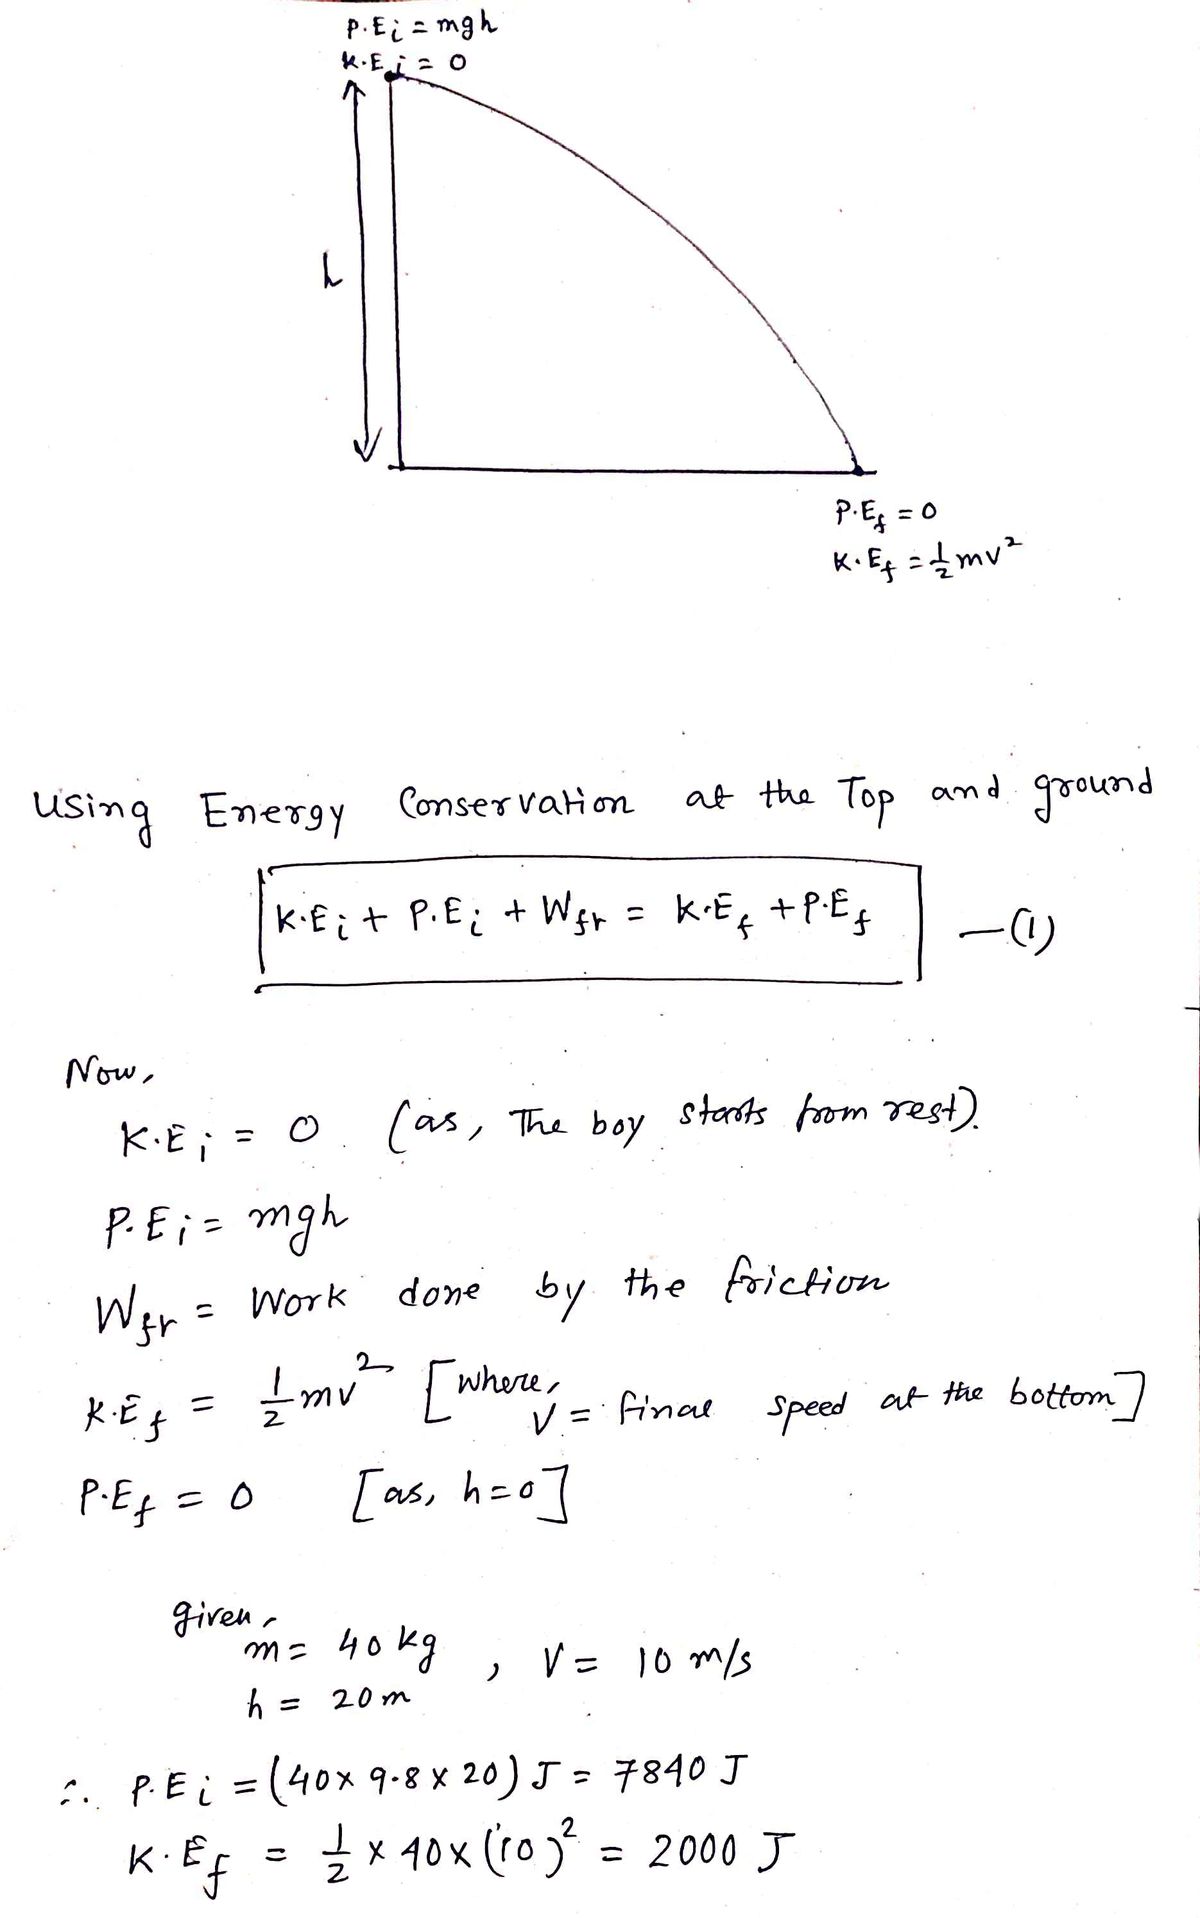 P.Ei = mgh
K.Ei = 0
h
P.Ef = 0
K.Ef = 1/2 mv²
Using Energy Conservation at the Top and ground
K.Ei + P.Ei + Wfr = K.Ef + P.Ef —(1)
Now,
K.Ei = 0 (as, The boy starts from rest).
P.Ei = mgh
Wfr = Work done by the friction
K.Ef = 1/2 mv² [where,
V = final speed at the bottom]
P.Ef = 0 [as, h=0]
given,
m = 40 kg , V = 10 m/s
h = 20 m
∴ P.Ei = (40 x 9.8 x 20) J = 7840 J
K.Ef = 1/2 x 40 x (10)² = 2000 J